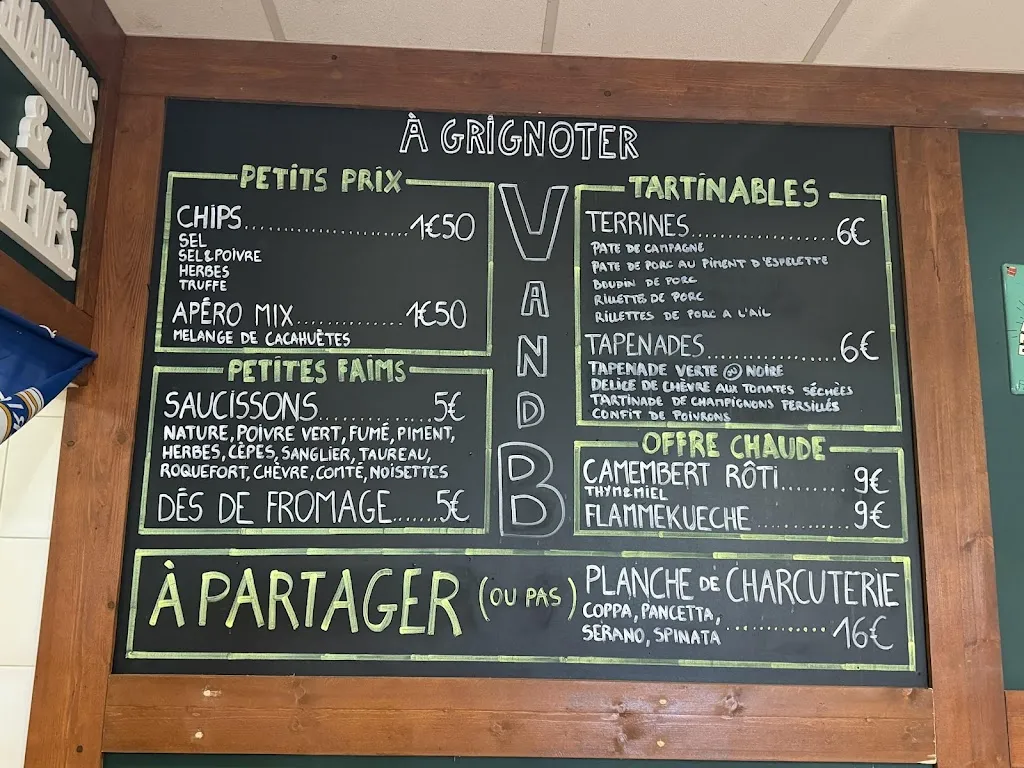 HARNUS
&
À GRIGNOTER
PETITS PRIX
CHIPS..................1€50
SEL
SEL & POIVRE
HERBES
TRUFFE
APÉRO MIX............1€50
MELANGE DE CACAHUÈTES
PETITES FAIMS
SAUCISSONS............5€
NATURE, POIVRE VERT, FUMÉ, PIMENT,
HERBES, CÈPES, SANGLIER, TAUREAU,
ROQUEFORT, CHÈVRE, COMTÉ, NOISETTES
DÉS DE FROMAGE......5€
V AND B
TARTINABLES
TERRINES..................6€
PATE DE CAMPAGNE
PATE DE PORC AU PIMENT D'ESPELETTE
BOUDIN DE PORC
RILLETTES DE PORC
RILLETTES DE PORC A L'AIL
TAPENADES................6€
TAPENADE VERTE OU NOIRE
DELICE DE CHÈVRE AUX TOMATES SÉCHÉES
TARTINADE DE CHAMPIGNONS PERSILLÉS
CONFIT DE POIVRONS
OFFRE CHAUDE
CAMEMBERT RÔTI........9€
THYM & MIEL
FLAMMEKUECHE..........9€
À PARTAGER (OU PAS)
PLANCHE DE CHARCUTERIE
COPPA, PANCETTA,
SERANO, SPINATA............16€